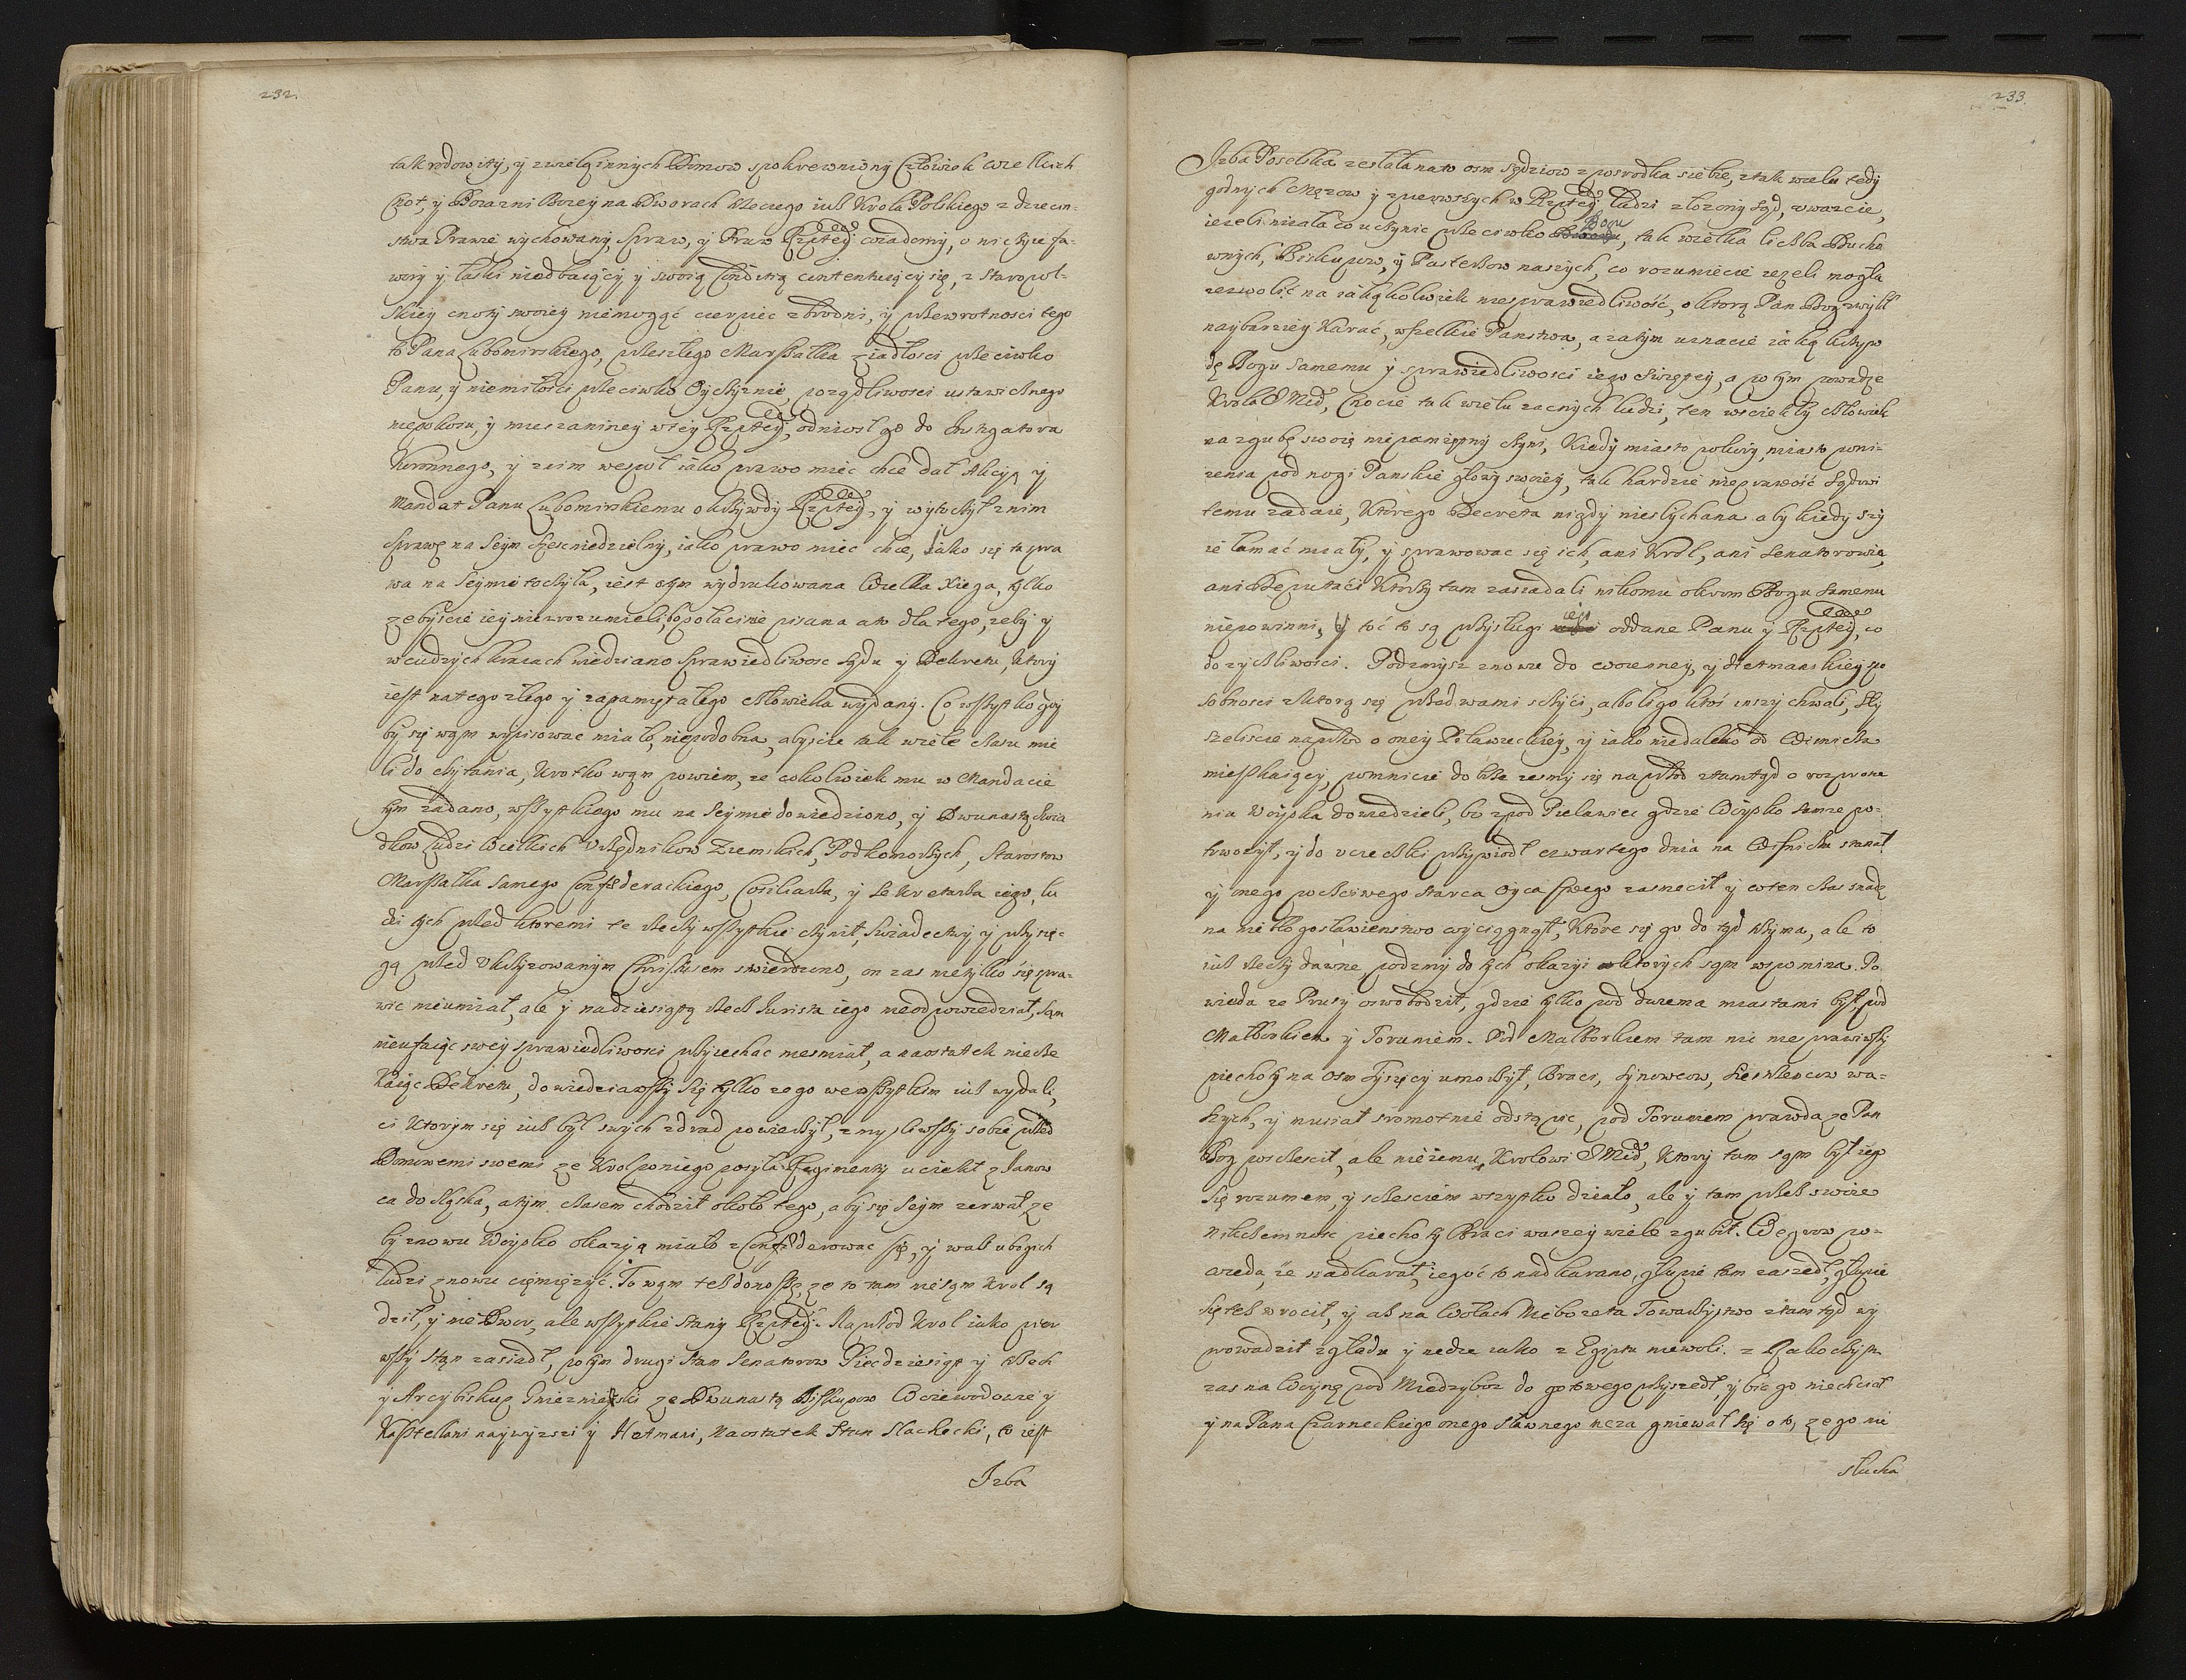 232.
tak rodowity, y zwielą innych Domow spokrewniony Człowiek wszelkich
Cnot, y Boiazni Bozey na Dworach trzeciego iuż Krola Polskiego z dziecin-
stwa Prawie wychowany, spraw, y Praw Rzptey wiadomy, o nic tylko fa-
wory y łaski niedbaiący, y swoią Condicią contentuiący się, z staropol-
skiey cnoty swoiey niemogąc cierpiec zbrodni, y przewrotnosci tego
to Pana Lubomirskiego, przeszłego Marszałka ziadłosci przeciwko
Panu, y niemiłości przeciwko Oyczyznie, poządliwosci ustawicznego
niepokoiu, y mieszaniney w tey Rzptey, odniosł go do Instigatora
Koronnego, y znim wespoł iako prawo miec chce dał Akcyą y
Mandat Panu Lubomirskiemu o krzywdy Rzptey, y wytoczył znim
sprawę na Seym szescniedzielny, iako prawo miec chce, iako się ta spra
wa na Seymie toczyła, iest otym wydrukowana Wielka Xięga, tylko
zebyscie iey niezrozumieli, bo polacinie pisana a to dla tego, zeby y
w cudzych kraiach wiedziano sprawiedliwosc sądu y Dekretu, ktory
iest na tego złego y zapamiętałego człowieka wydany. Co wszystko gdy
by się wąm wypisowac miało, niepodobna, abyscie tak wiele czasu mie
li do czytania, krotko wąm powiem, ze cokolwiek mu w Mandacie
tym zadano, wszystkiego mu na Seymie dowiedziono, y Dwunastą swia
dkow Ludzi Wielkich Urzędnikow Ziemskich, Podkomorzych, Starostow
Marszałka samego Confederackiego, Consiliarza, y Sekretarza iego, lu
dzi tych przed ktoremi te rzeczy wszystkie czynił, swiadectwy y przysię-
gą przed Ukrzyzowanym Christusem stwierdzono, on zas nietylko się spra-
wic nieumiał, ale y na dziesiątą rzecz Jurista iego nieodpowiedział, sąm
nieufaiąc swey sprawiedliwosci przyiechac niesmiał, a naostatek niecze
kaiąc Dekretu, dowiedziawszy się tylko ze go we wszystkim iuż wydali,
ci ktorym się iuż był swych zdrad powierzył, zmysliwszy sobie przed
Domowemi swemi ze Krol poniego posyła Regimenty uciekł z Janow
ca do Sląska, a tym czasem chodził około tego, aby się Seym zerwał ze
by znowu Woysko okazyą miało z Confederowac się, y was ubogich
ludzi znowu ciemięzyć. To wąm też donoszę, ze to tam nie sąm Krol są
dził, y nie Dwor, ale wszystkie Stany Rzptey. Naprzod Krol iako pier
wszy Stąn zasiadł, potym drugi Stan Senatorow Pięcdziesiąt y trzech
y Arcybiskup Gniezninski ze Dwunastą Biskupow Woiewodowie y
Kasztellani naywyzszi y Hetmani, Naostatek Stan Slachecki, to iest
Izba
233.
Izba Poselska zesłała na to osm Sędziow zposrodka siebie, z tak wielu tedy
godnych Męzow y zpierwszych w Rzptey ludzi złozony Sąd, uwazcie,
iezeli miała co uczynic przeciwko Bogu, tak wielka liczba Ducho
wnych, Biskupow, y Pasterzow naszych, co rozumiecie iezeli mogła
zezwolić na iakąkolwiek niesprawiedliwość, o ktorą Pan Bog zwykł
naybarziey karać, wszelkie Panstwa, a zatym uznacie iaką krzyw
dę Bogu samemu y sprawiedliwosci iego Swiętey, a potym powadze
Krola JMci, Cnocie tak wielu zacnych ludzi, ten wsciekły człowiek
na zgubę swoię niepamiętny czyni, Kiedy miasto pokory, miasto poni-
zenia pod nogi Panskie głowy swoiey, tak hardzie nieprawość Sądowi
temu zadaie, ktorego Decreta nigdy nieslychana aby kiedy szy
ie łamać miały, y sprawowac się ich, ani Krol, ani Senatorowie,
ani Deputaci ktorzy tam zasiadali nikomu okrom Bogu samemu
niepowinni, y toć to są przysługi iego oddane Panu y Rzptey, co
do zyczliwości. Podzmysz znowu do woienney, y Hetmanskiey spo
sobnosci z ktorą się przed wami szczyci, abo ligo ktoś inszy chwali, sły
szeliscie naprzod o oney Pilawieckiey, y iako niedaleko od Wisnicza
mieszkaiący, pomnicie dobrze zesmy się naprzod ztamtąd o rozprosze
niu Woyska dowiedzieli, bo zpod Pielawiec gdzie Woysko samże po-
trwozył, y do ucieczki przywiodł czwartego dnia na Wisniczu stanał
y onego poczciwego Starca Oyca swego zasmucił y w ten czas snadz
na nie błogosławienstwo wyciągnął, ktore się go do tąd trzyma, ale to
iuż rzeczy dawne podzmy do tych okazyi o ktorych sąm wspomina. Po
wieda ze Prusy oswobodził, gdzie tylko pod dwiema miastami był, pod
Malborkiem y Toruniem. Pod Malborkiem tam nic nie sprawiwszy
piechoty na osm Tysięcy umorzył, Braci, Synowcow, Siestrzencow wa-
szych, y musiał sromotnie odstąpic, pod Toruniem prawda ze Pan
Bog poszczescił, ale nie iemu, Krolowi JMci, ktory tam sąm był iego
się rozumem, y szczesciem wszystko działo, ale y tam przez swoie
nikczemnosc piechoty Braci waszey wiele zgubił. Węgrow po-
wieda, że nadkarał, iegoć to nadkarano, głupie tam zaszedł, głupie
się też wrocił, y aż na Wołach Nieboząta Towarzystwo ztamtąd wy
prowadził zgładu y nedze iako z Egiptu niewoli. z Rakoczym
zas na Woynę pod Miedzyboz do gotowego przyszedł, y bic go niechciał
y na Pana Czarneckiego onego sławnego męza gniewał się o to, ze go nie
słucha